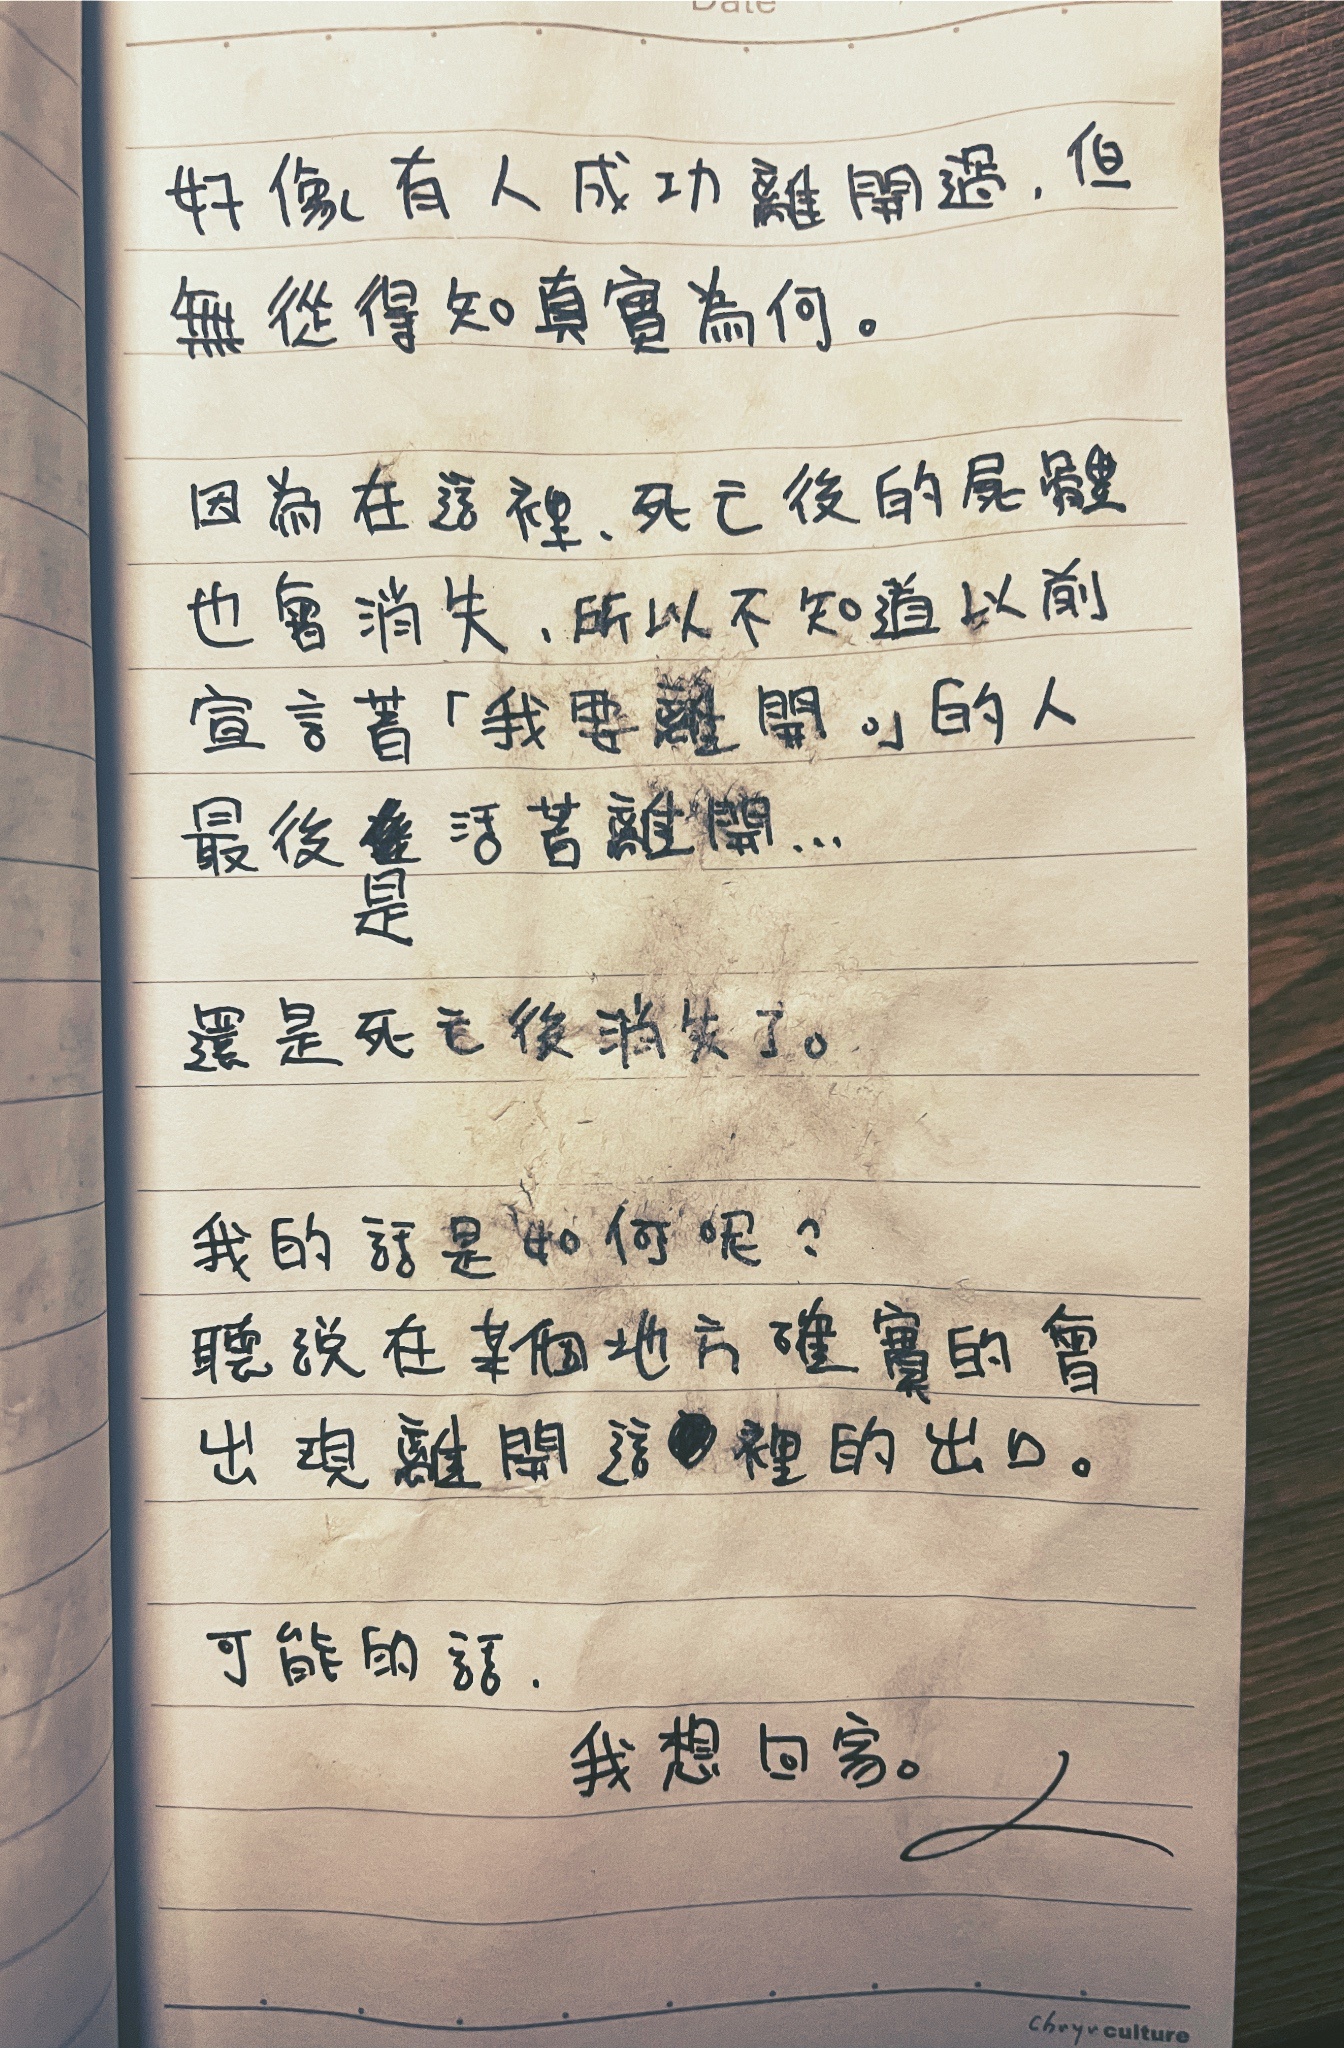 Date
好像有人成功離開過,但
無從得知真實為何。
因為在這裡、死亡後的屍體
也會消失、所以不知道以前
宣言著「我要離開。」的人
最後 活著離開...
是
還是死亡後消失了。
我的話是如何呢?
聽說在某個地方確實的會
出現離開這裡的出口。
可能的話.
我想回家。
culture